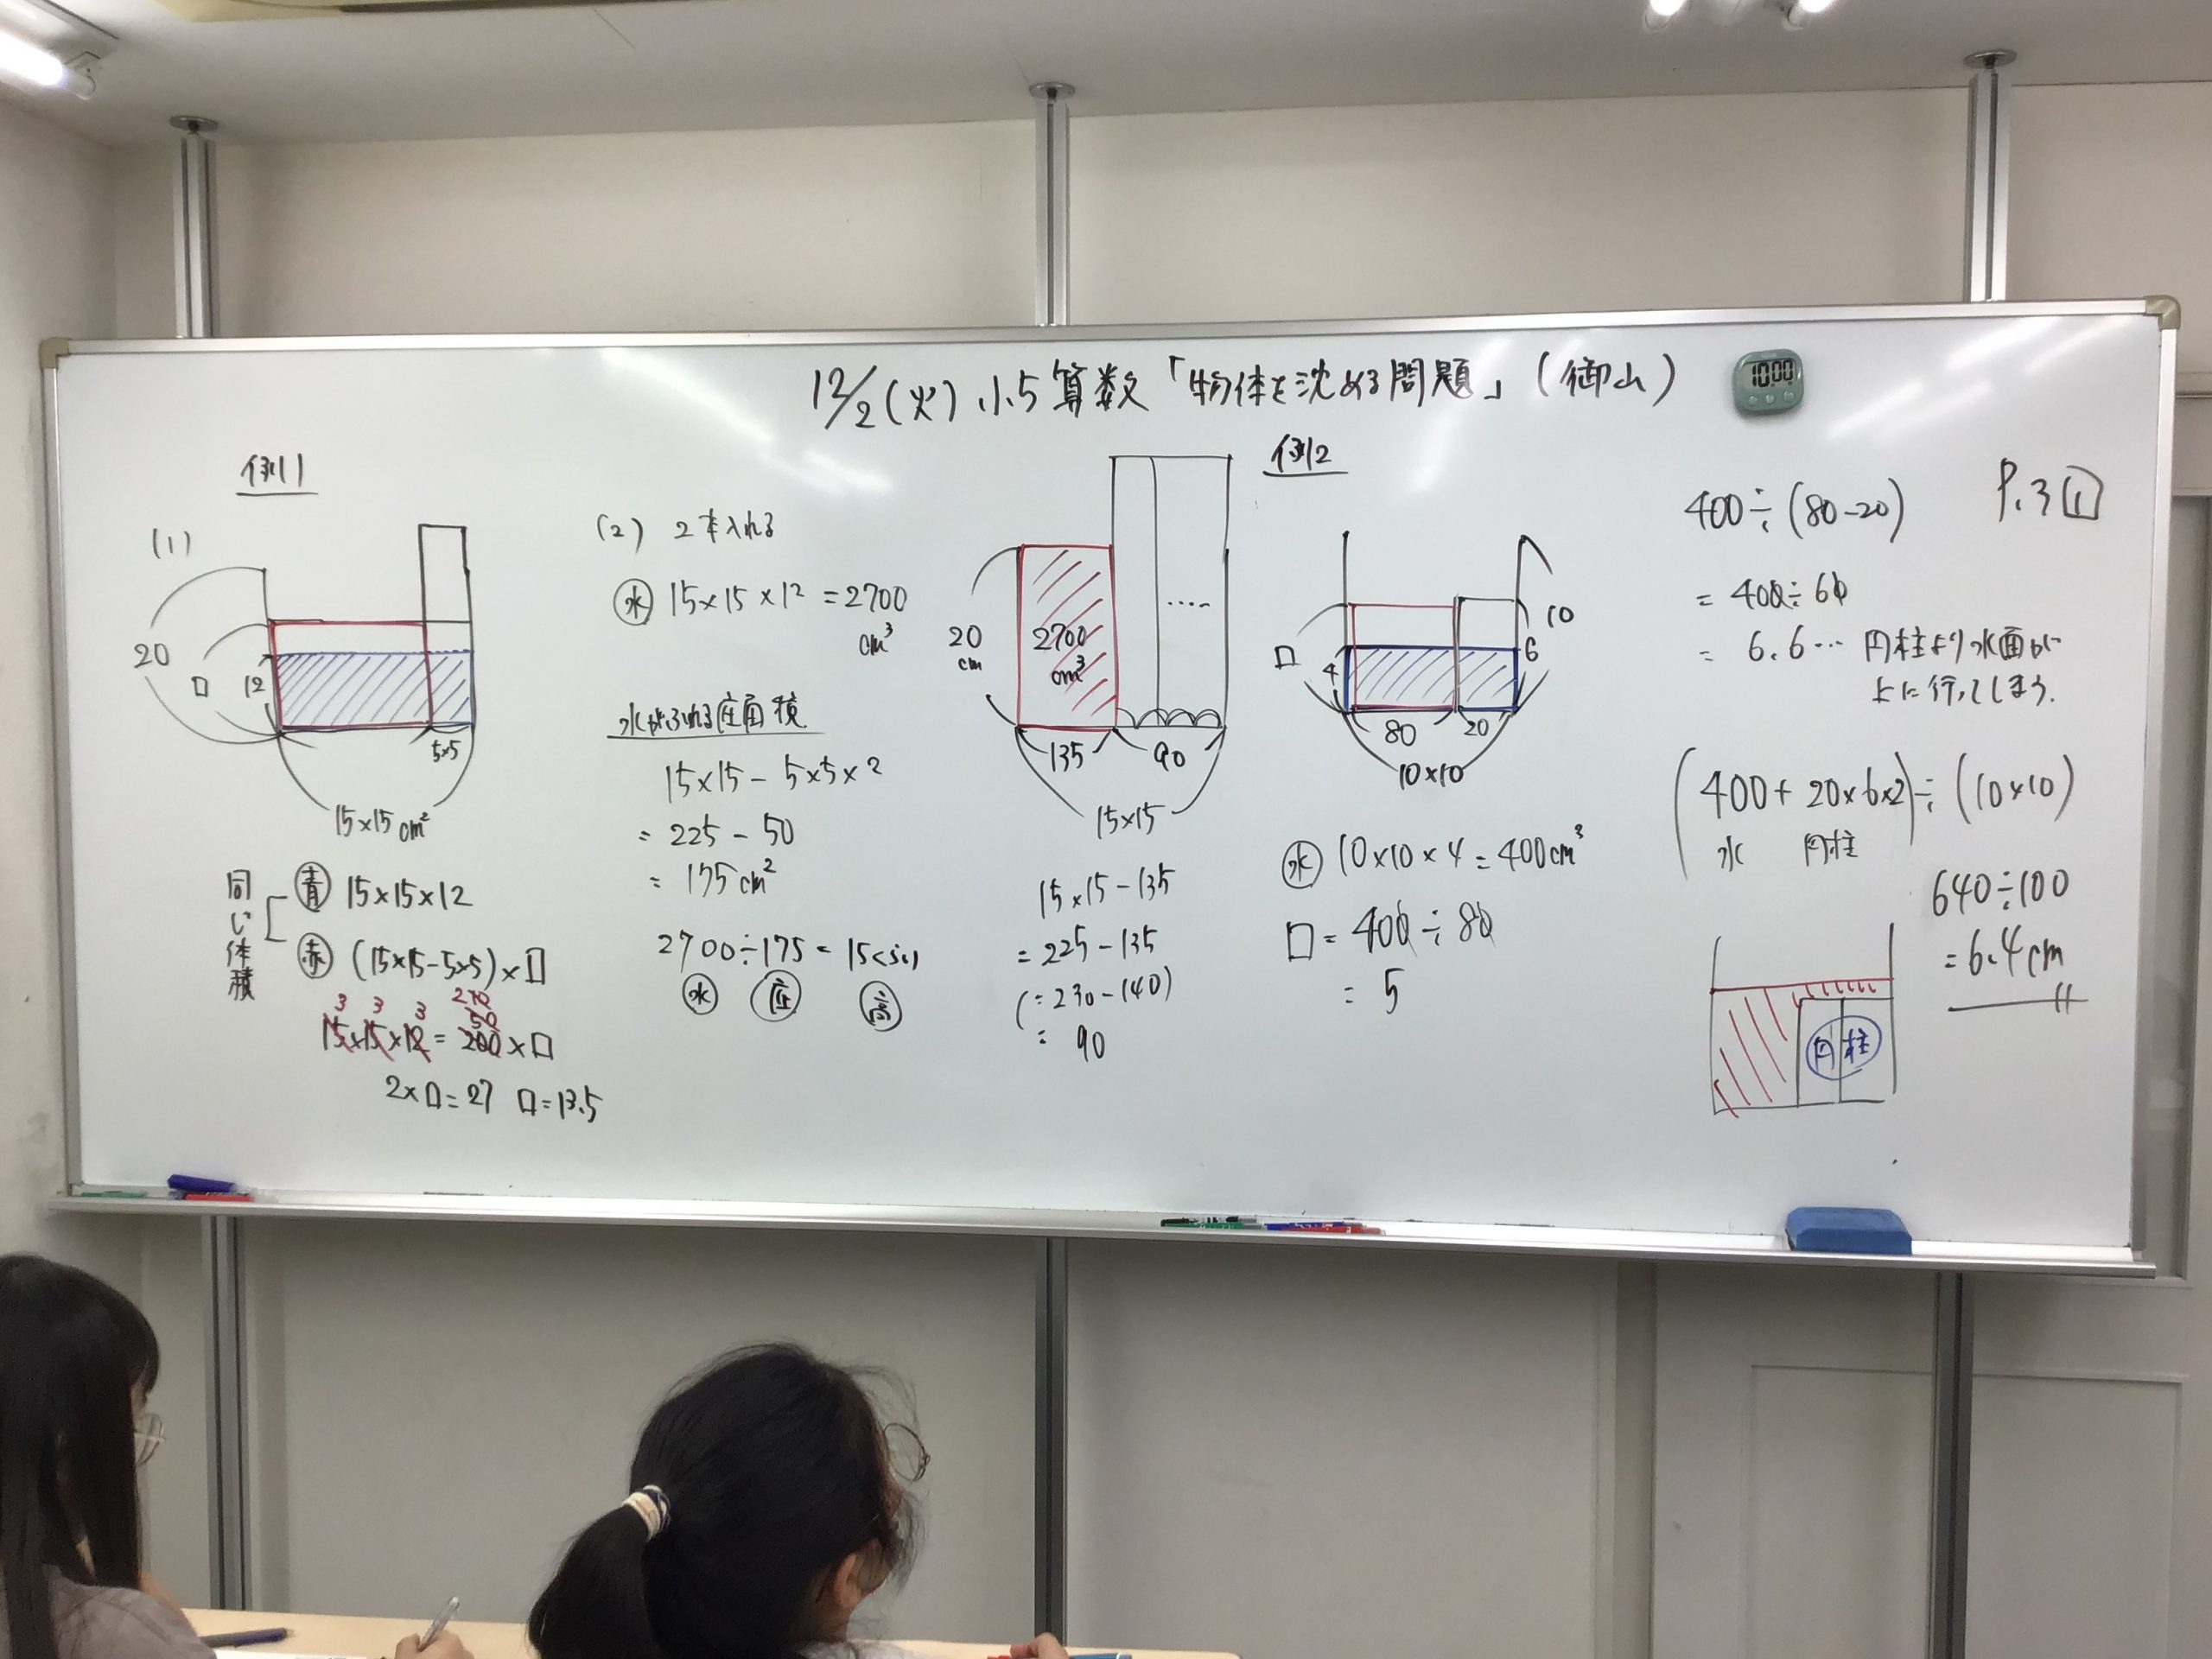 12/2(火) 小5算数「物体を沈める問題」(御山)
10:00
例1
(1)
20
□
12
5×5
15×15cm²
同じ体積
青 15×15×12
赤 (15×15-5×5)×□
3 3 3 270
50
15×15×12=200×□
2×□=27 □=13.5
(2) 2本入れる
水 15×15×12=2700
cm³
水がふれる底面積
15×15-5×5×2
=225-50
=175cm²
2700÷175=15くらい
水 底 高
20
cm
2700
cm³
135
90
15×15
15×15-135
=225-135
(=230-140)
=90
例2
□
4
10
6
80
20
10×10
水 10×10×4=400cm³
□=400÷80
=5
P.3 1
400÷(80-20)
=400÷60
=6.6… 円柱より水面が
上に行ってしまう.
(400+20×6×2)÷(10×10)
水 円柱
640÷100
=6.4cm
円柱